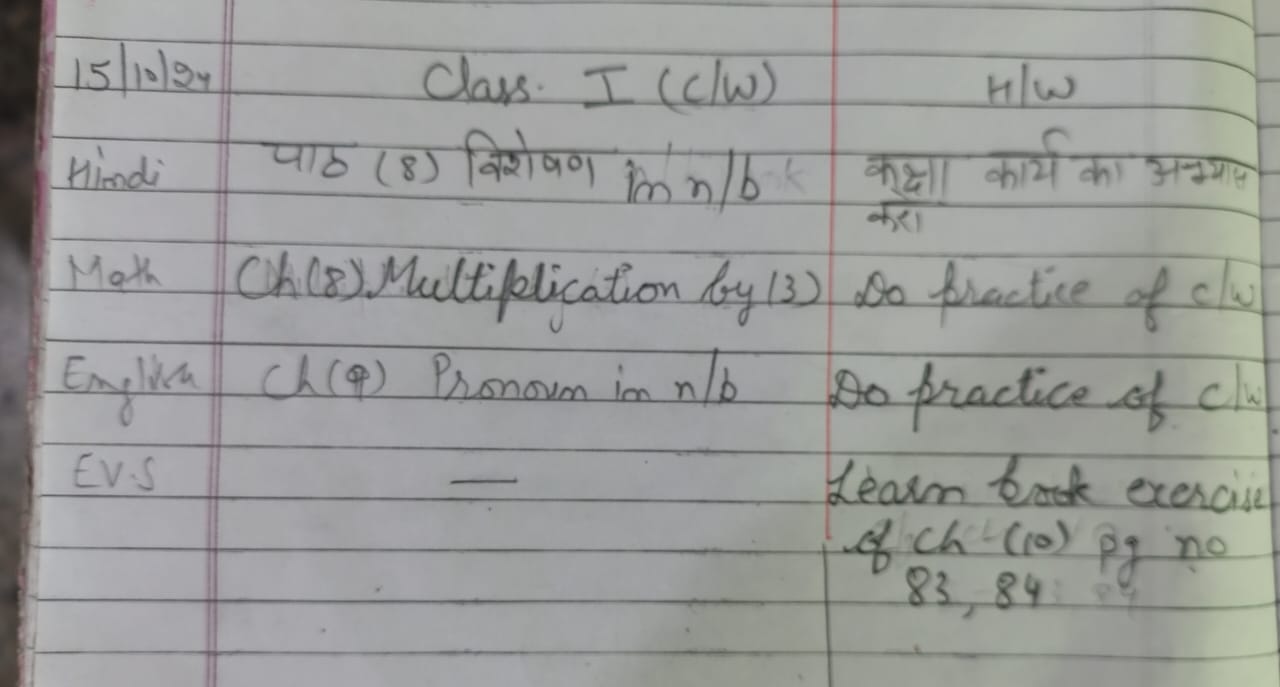 15/10/24 Class. I (c/w) H/W
Hindi पाठ (8) विशेषण in n/b कक्षा कार्य का अभ्यास
करो
Math Ch(8) Multiplication by (3) Do practice of c/w
English Ch(9) Pronoun in n/b Do practice of c/w
EV.S — Learn book exercise
of ch (10) pg no
83, 84